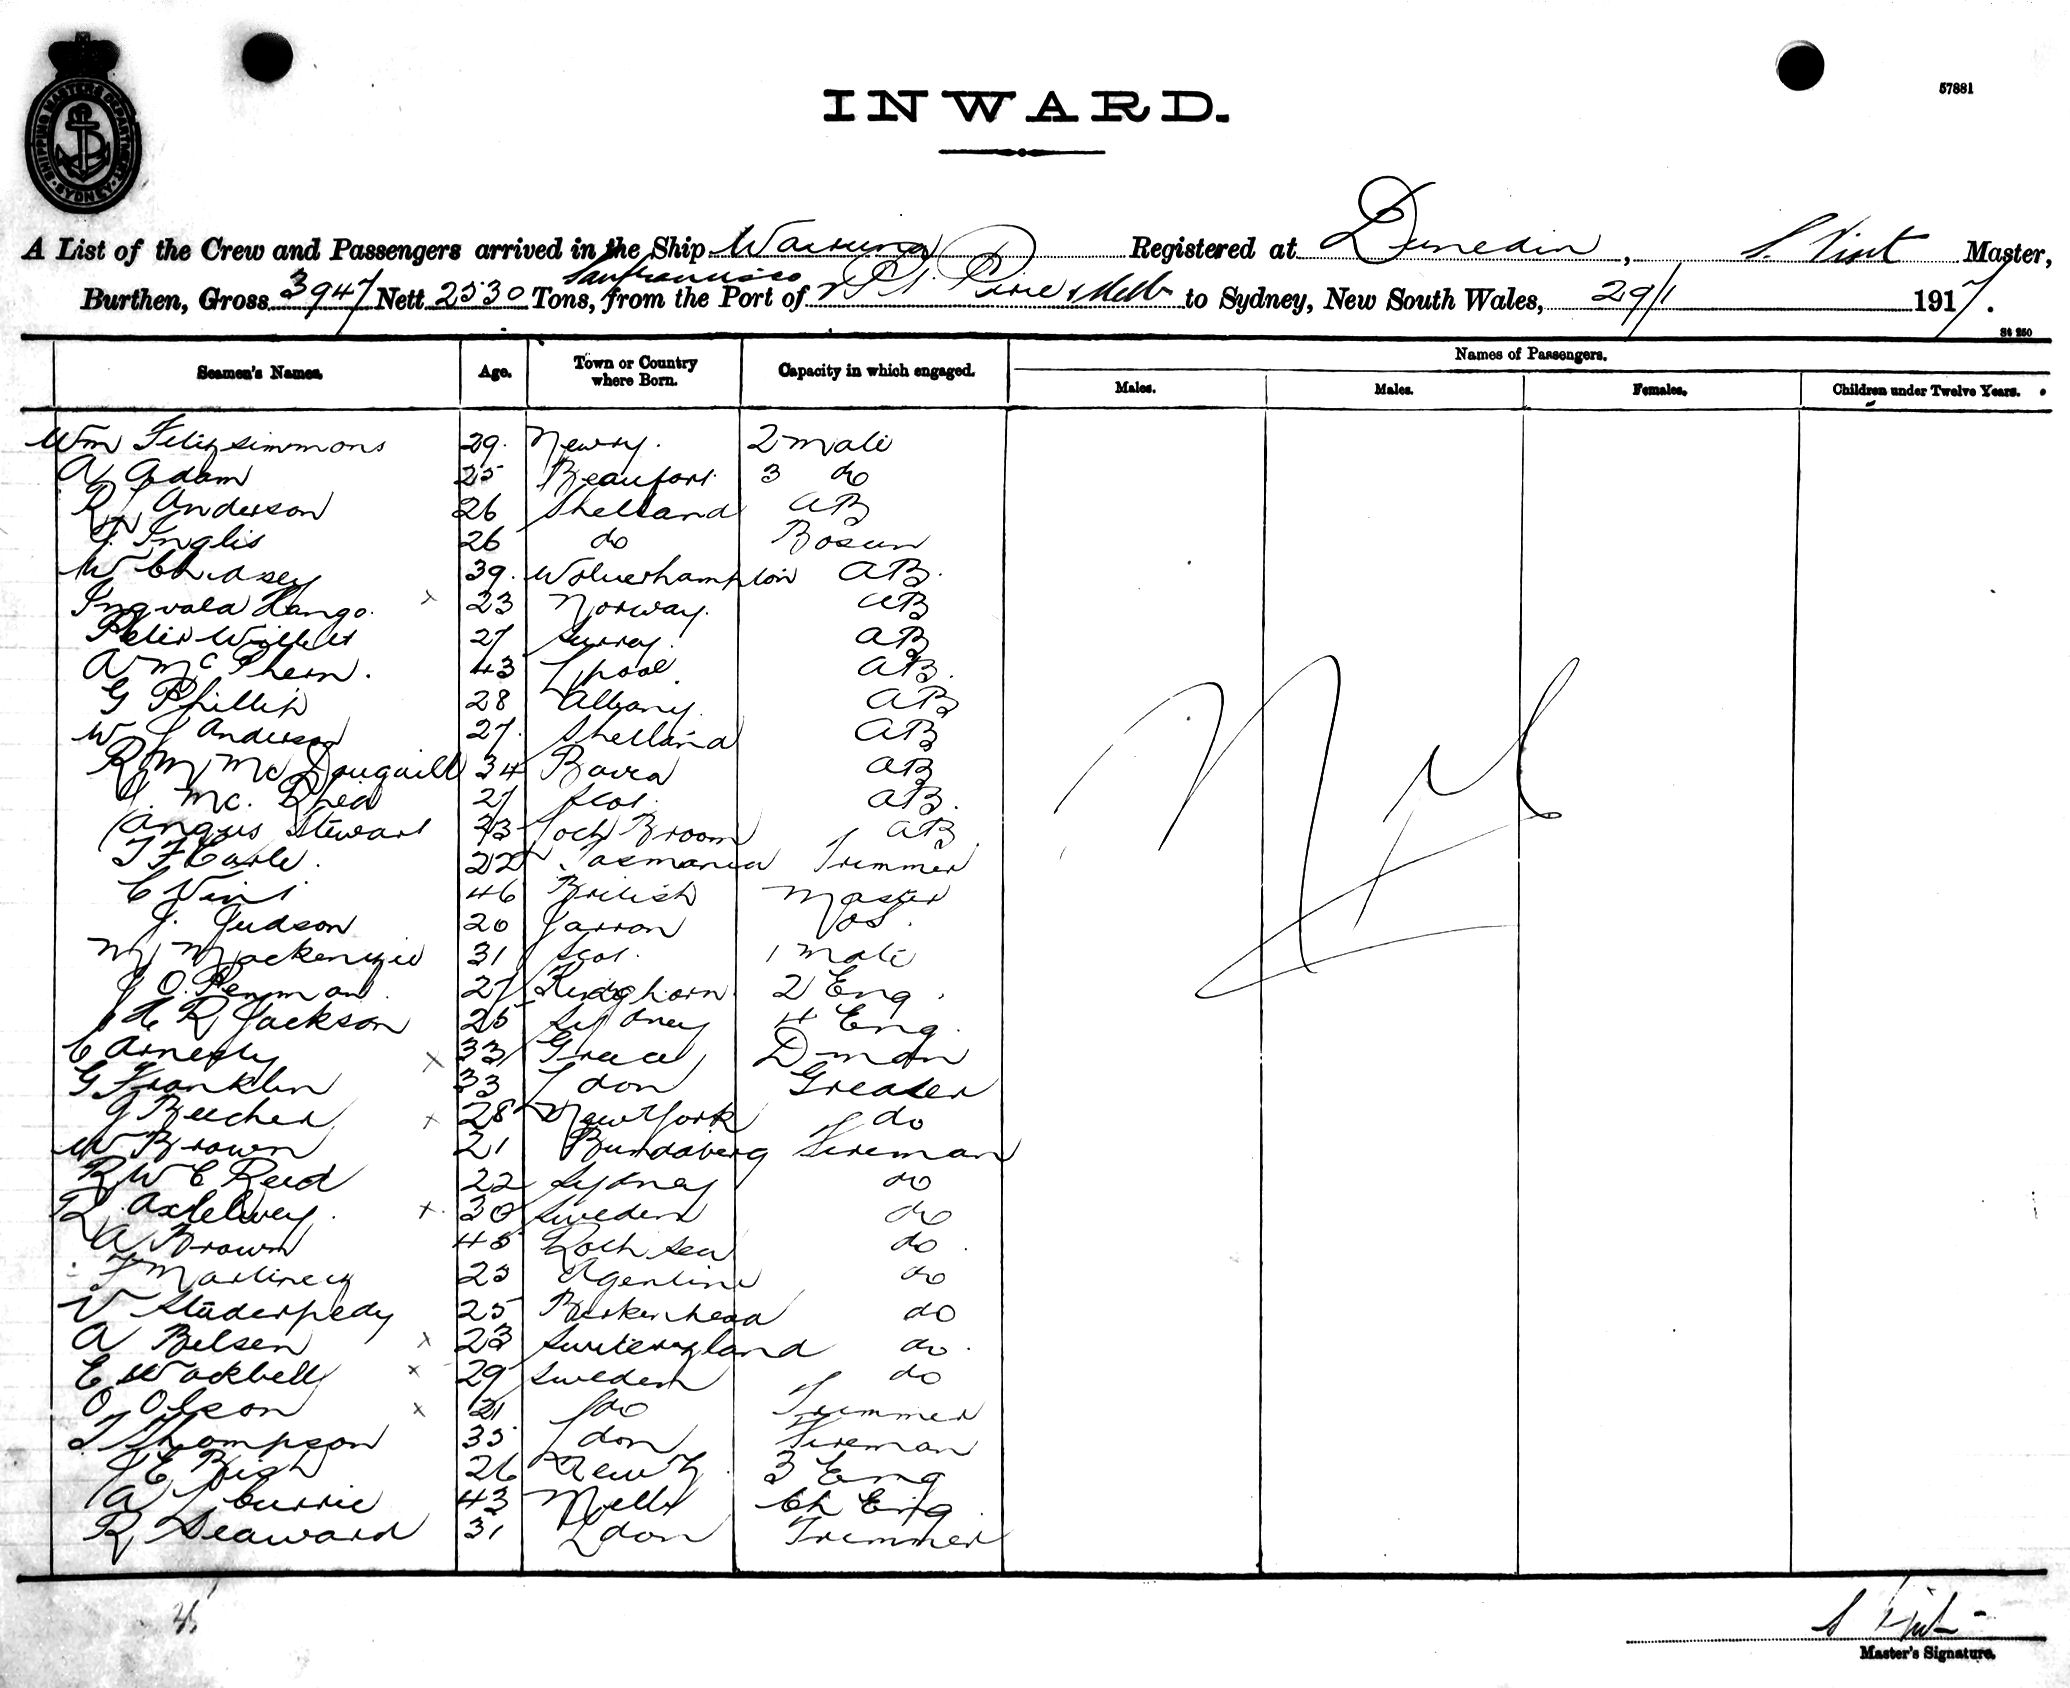 SHIPPING MASTERS DEPARTMENT SYDNEY
57881
INWARD.
A List of the Crew and Passengers arrived in the Ship Wairuna Registered at Dunedin, S. Vint Master,
Burthen, Gross 3947 Nett 2530 Tons, from the Port of San Francisco Pt. Pirie & Melb to Sydney, New South Wales, 29/1 1917.
St 250
Seamen's Names. Age. Town or Country where Born. Capacity in which engaged. Names of Passengers.
Males. Males. Females. Children under Twelve Years.
Wm Fitzsimmons 29. Newry. 2 Mate
A Adam 25 Beaufort 3 do
R L Anderson 26 Shetland AB
Inglis 26 do Bosun
W 39. Wolverhampton AB.
Ingvald Hango. x 23 Norway. AB
Peter 27 Surrey. AB
A McPhern. 43 Lpool. AB.
G Phillip 28 Albany. AB
W J Anderson 27. Shetland AB
R M McDougall 34 Barra AB
J. Mc. Rhea 27 Scot. AB.
Angus Stewart 33 Loch Broom AB
T F Earle. 22 Tasmania Trimmer
C Vint 46 British Master
J. Judson 20 Jarron OS.
M Mackenzie 31 Scot. 1 Mate
J O. Penman. 27 Kinghorn. 2 Eng.
H R Jackson 25 Sydney 4 Eng.
C x 33 Greece D-man
G Franklin 33 Ldon Greaser
J Beecher x 28 New York do
W Brown 21 Bundaberg Fireman
R W C Reed 22 Sydney do
x 30 Sweden do
A Brown 45 Roth sea do.
F Martinez 23 Agentine do
V 25 Berkenhead do
A Belsen x 23 Switerzland do.
E Wackbell x 29 Sweden do
O Olson x 21 do Trimmer
T Thompson 35 Ldon Fireman
J E Bish 26 New Z. 3 Eng
A L Currie 43 Melb Ch Eng.
R Seaward 31 Ldon Trimmer
Nil
S Vint
Master's Signature.